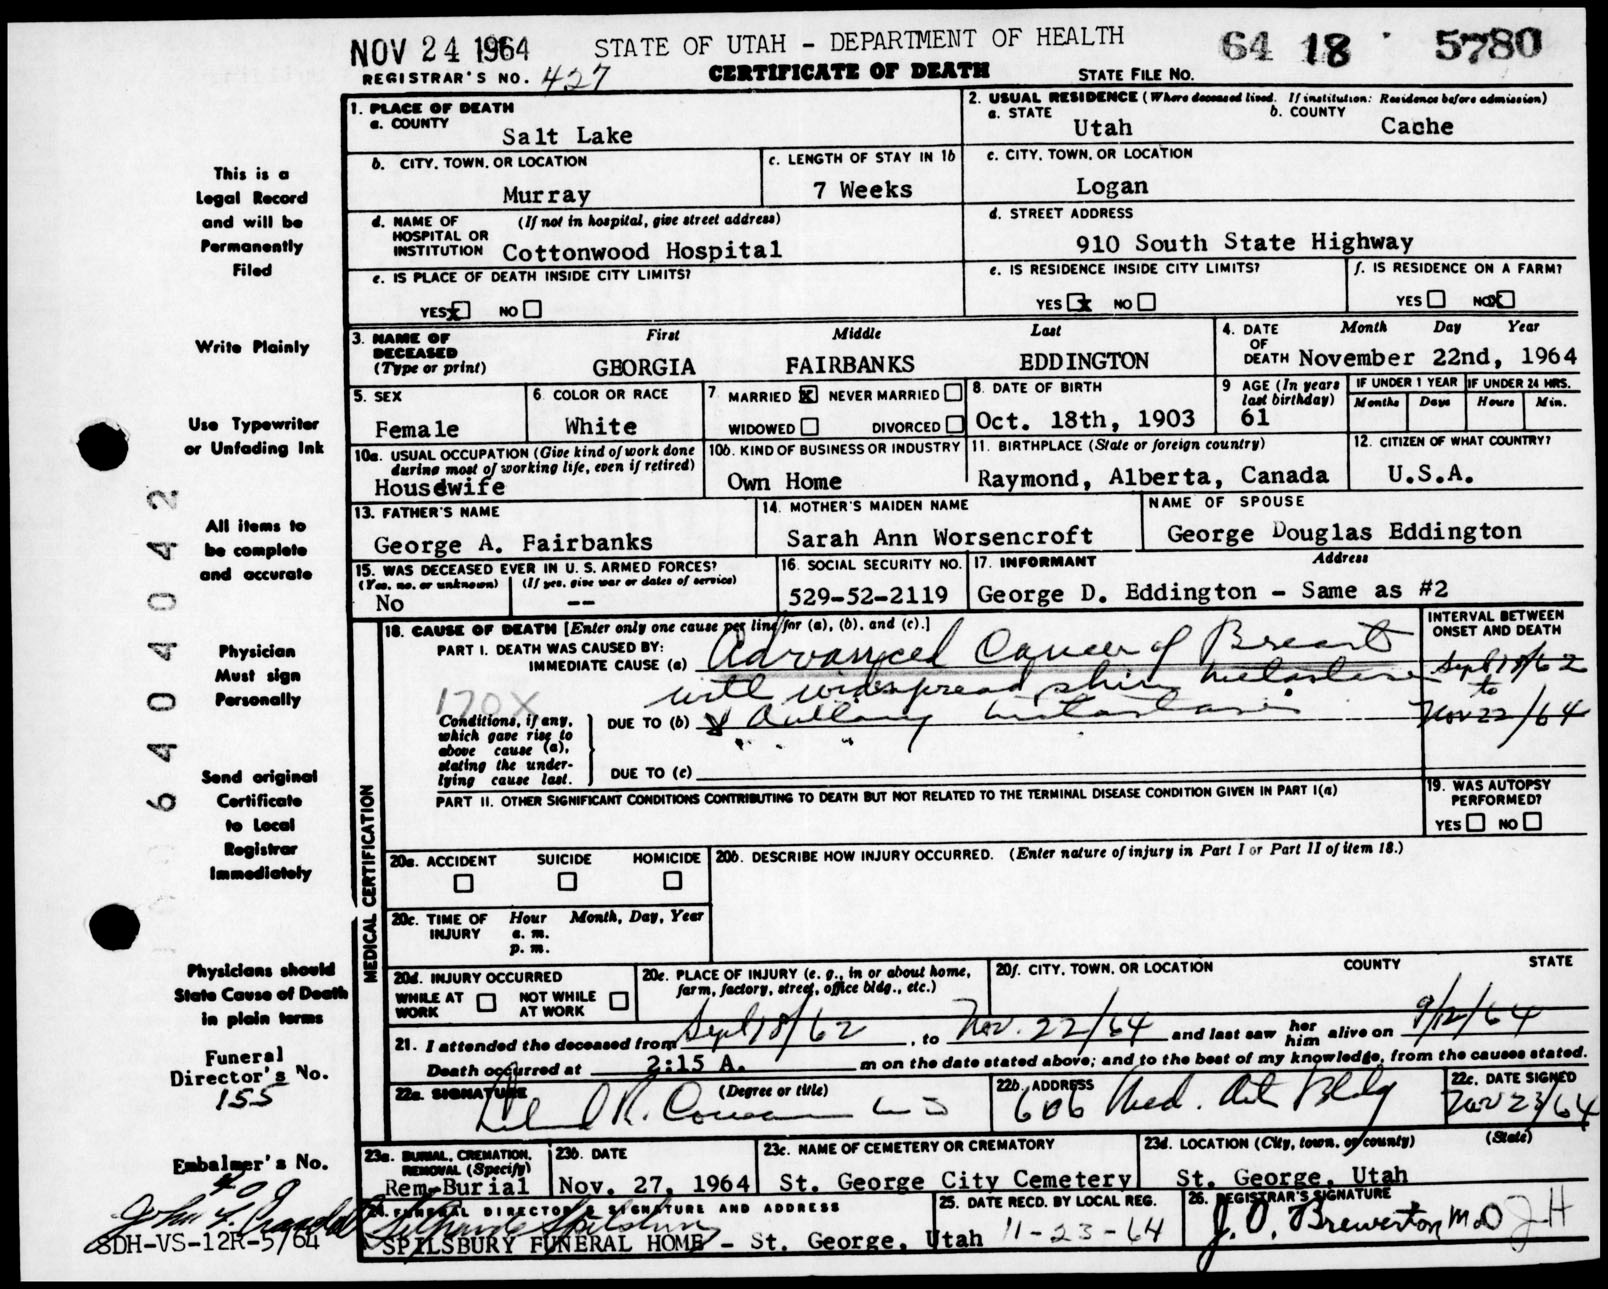 NOV 24 1964 STATE OF UTAH - DEPARTMENT OF HEALTH 64 18 5780
REGISTRAR'S NO. 427 CERTIFICATE OF DEATH STATE FILE NO.
1. PLACE OF DEATH
a. COUNTY
Salt Lake
2. USUAL RESIDENCE (Where deceased lived. If institution: Residence before admission)
a. STATE b. COUNTY
Utah Cache
b. CITY, TOWN, OR LOCATION
Murray
c. LENGTH OF STAY IN 1b
7 Weeks
c. CITY, TOWN, OR LOCATION
Logan
d. NAME OF HOSPITAL OR INSTITUTION (If not in hospital, give street address)
Cottonwood Hospital
d. STREET ADDRESS
910 South State Highway
e. IS PLACE OF DEATH INSIDE CITY LIMITS?
YES x NO
e. IS RESIDENCE INSIDE CITY LIMITS?
YES x NO
f. IS RESIDENCE ON A FARM?
YES NO x
3. NAME OF DECEASED (Type or print)
First Middle Last
GEORGIA FAIRBANKS EDDINGTON
4. DATE OF DEATH Month Day Year
November 22nd, 1964
5. SEX
Female
6. COLOR OR RACE
White
7. MARRIED x NEVER MARRIED
WIDOWED DIVORCED
8. DATE OF BIRTH
Oct. 18th, 1903
9 AGE (In years last birthday)
61
IF UNDER 1 YEAR IF UNDER 24 HRS.
Months Days Hours Min.
10a. USUAL OCCUPATION (Give kind of work done during most of working life, even if retired)
Housewife
10b. KIND OF BUSINESS OR INDUSTRY
Own Home
11. BIRTHPLACE (State or foreign country)
Raymond, Alberta, Canada
12. CITIZEN OF WHAT COUNTRY?
U.S.A.
13. FATHER'S NAME
George A. Fairbanks
14. MOTHER'S MAIDEN NAME
Sarah Ann Worsencroft
NAME OF SPOUSE
George Douglas Eddington
15. WAS DECEASED EVER IN U. S. ARMED FORCES?
(Yes, no, or unknown) (If yes, give war or dates of service)
No --
16. SOCIAL SECURITY NO.
529-52-2119
17. INFORMANT Address
George D. Eddington - Same as #2
MEDICAL CERTIFICATION
18. CAUSE OF DEATH [Enter only one cause per line for (a), (b), and (c).]
PART I. DEATH WAS CAUSED BY:
IMMEDIATE CAUSE (a) Advanced Cancer of Breast
with widespread skin metastases
170X
Conditions, if any, which gave rise to above cause (a), stating the underlying cause last.
DUE TO (b) & axillary metastasis
DUE TO (c)
INTERVAL BETWEEN ONSET AND DEATH
Sept 18/62
to
Nov 22/64
PART II. OTHER SIGNIFICANT CONDITIONS CONTRIBUTING TO DEATH BUT NOT RELATED TO THE TERMINAL DISEASE CONDITION GIVEN IN PART I(a)
19. WAS AUTOPSY PERFORMED?
YES NO
20a. ACCIDENT SUICIDE HOMICIDE
20b. DESCRIBE HOW INJURY OCCURRED. (Enter nature of injury in Part I or Part II of item 18.)
20c. TIME OF INJURY Hour Month, Day, Year
a. m.
p. m.
20d. INJURY OCCURRED
WHILE AT WORK NOT WHILE AT WORK
20e. PLACE OF INJURY (e. g., in or about home, farm, factory, street, office bldg., etc.)
20f. CITY, TOWN, OR LOCATION COUNTY STATE
21. I attended the deceased from Sept 18/62, to Nov. 22/64 and last saw her him alive on 9/12/64
Death occurred at 2:15 A. m on the date stated above; and to the best of my knowledge, from the causes stated.
22a. SIGNATURE (Degree or title)
22b. ADDRESS
606 Med. Arts Bldg
22c. DATE SIGNED
Nov 23/64
23a. BURIAL, CREMATION, REMOVAL (Specify)
Rem-Burial
23b. DATE
Nov. 27, 1964
23c. NAME OF CEMETERY OR CREMATORY
St. George City Cemetery
23d. LOCATION (City, town, or county) (State)
St. George, Utah
24. FUNERAL DIRECTOR'S SIGNATURE AND ADDRESS
SPILSBURY FUNERAL HOME - St. George, Utah
25. DATE RECD. BY LOCAL REG.
11-23-64
26. REGISTRAR'S SIGNATURE
J. O. Brewerton MD JH
This is a
Legal Record
and will be
Permanently
Filed
Write Plainly
Use Typewriter
or Unfading Ink
All items to
be complete
and accurate
Physician
Must sign
Personally
Send original
Certificate
to Local
Registrar
Immediately
Physicians should
State Cause of Death
in plain terms
Funeral
Director's No.
155
Embalmer's No.
SDH-VS-12R-5/64
64 04 042